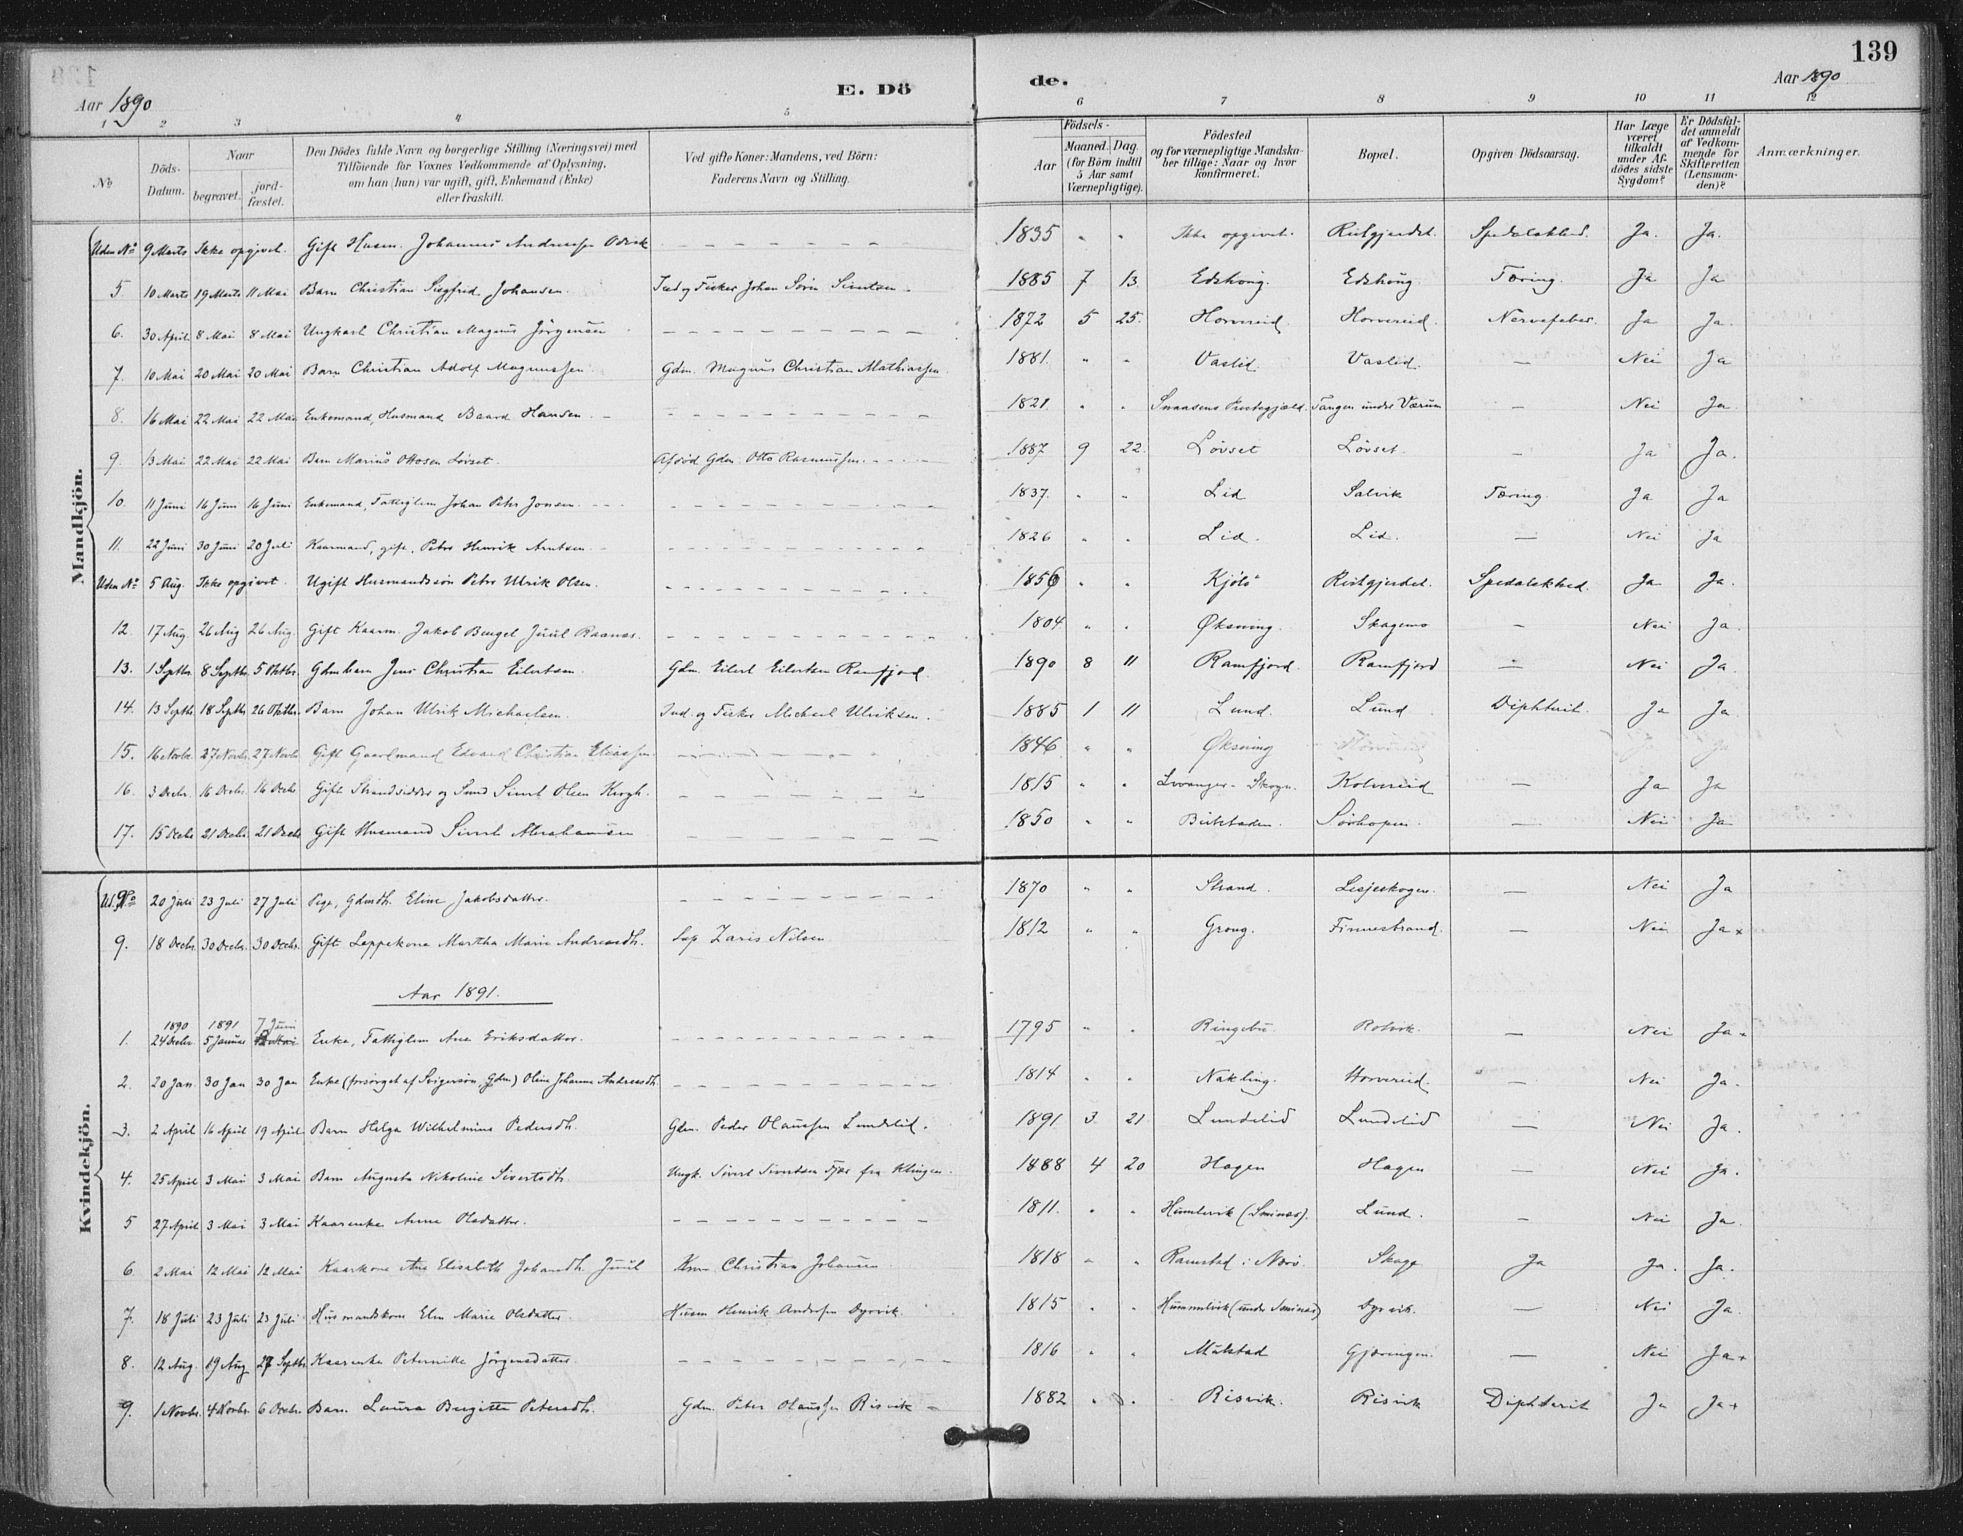 139
Aar 1890 E. Dö de. Aar 1890
1 2 3 4 5 6 7 8 9 10 11 12
No Döds-Datum. Naar begravet. jord-fæstet. Den Dödes fulde Navn og borgerlige Stilling (Næringsvei) med Tilföiende for Voxnes Vedkommende af Oplysning, om han (hun) var ugift, gift, Enkemand (Enke) eller fraskilt. Ved gifte Koner: Mandens, ved Börn: Faderens Navn og Stilling. Födsels- Aar Maaned. Dag. (for Börn indtil 5 Aar samt Værnepligtige). Födested og for værnepligtige Mandskaber tillige: Naar og hvor konfirmeret. Bopæl. Opgiven Dödsaarsag. Har Læge været tilkaldt under Afdödes sidste Sygdom? Er Dödsfaldet anmeldt af Vedkommende for Skifteretten (Lensmanden)? Anmærkninger.
Mandkjön.
Uden No 9 Marts Ikke opgivet. Gift Husm. Johannes Andreassen - - - 1835 " " Ikke opgivet. Reitgjerdet. Spedalskhed. Ja. Ja.
5. 10 Marts 19 Marts 11 Mai Barn Christian Sigfred Johansen. Ind og Fisker Johan Sivertsen. 1885 7 13. Edshoug. Edshoug Tæring. Ja Ja
6. 30 April 8 Mai 8 Mai Ungkarl Christian Magnus Jörgensen - - - 1872 5 25. Horvereid. Horvereid. Nervefeber. Ja Ja.
7. 10 Mai 20 Mai 20 Mai Barn Christian Adolf Magnussen Gdm. Magnus Christian Mathiassen 1881. " " Vaslid. Vaslid. — Nei Ja
8. 16 Mai 22 Mai 22 Mai Enkemand, Husmand Baard Hansen. - - - 1821 " " Snaasens Prestegjæld. Tangen under Værum — Nei Ja.
9. 13 Mai 22 Mai 22 Mai Barn Marius Ottosen Lövset. Afdöd Gdm. Otto Rasmussen. - - - 1887 9 22. Lövset Lövset. — Ja Ja.
10. 11 Juni 16 Juni 16 Juni Enkemand, Fattiglem Johan Peter Jonsen. - - - 1837. " " Lid Salvik Tæring. Ja Ja
11. 22 Juni 30 Juni 20 Juli Kaarmand, gift, Peter Henrik Arntsen - - - 1826 " " Lid. Lid. — Nei Ja
Uden No 5 Aug. Ikke opgivet. Ugift Husmandssön Peter Ulrik Olsen. - - - 1856 " " Reitgjerdet. Spedalskhed. Ja Ja.
12. 17 Aug. 26 Aug 26 Aug. Gift Kaarm. Jakob Bengel Juul Raanes. - - - 1804 " " Øksning. Skagemo — Nei Ja.
13. 1 Septbr. 8 Septbr. 5 Oktbr. Gdmbarn Jens Christian Eilertsen. Gdm. Eilert Eilertsen Ramfjord. 1890 8 11 Ramfjord. Ramfjord — Nei Ja.
14. 13 Septbr. 18 Septbr 26 Oktbr. Barn Johan Ulrik Michaelsen. Ind. og Fisker Michael Ulriksen. 1885 1 11 Lund. Lund Diphterit. Ja Ja.
15. 16 Novbr. 27 Novbr. 27 Novbr. Gift Gaardmand Edvard Christian Eliassen - - - 1846 " " Øksning
16. 3 Decbr. 16 Decbr. 16 Decbr Gift Strandsidder og Smed Sivert Olsen - - - 1815 " " Levanger - Skogn. Kolvereid — Ja Ja
17. 15 Decbr 21 Decbr. 21 Decbr Gift Husmand Sivert Abrahamsen - - - 1850 " " — Nei Ja
Kvindekjön.
20 Juli 23 Juli 27 Juli Pige, Gdmdtr. Eline Jakobsdatter. - - - 1870 " " Strand. — Nei Ja
9. 18 Decbr. 30 Decbr. 30 Decbr. Gift Lappekone Martha Marie Andreasdtr. Lap Zaris Nilsen 1812 " " Grong. Finnestrand. — Nei Ja x
Aar 1891.
1. 1890 24 Decbr. 1891 5 Januar 7 Juni Enke, Fattiglem Ane Eriksdatter. - - - 1795 " " Ringebu. Rotvik. — Nei Ja.
2. 20 Jan. 30 Jan 30 Jan Enke (forsörget af Svigersön, Gdm) Oline Johanna Andreasdtr. - - - 1814 " " Nakling. Horvereid. — Nei Ja.
3. 2 April 16 April 19 April Barn Helga Wilhelmine Pedersdtr. Gdm. Peder Olaussen Lundelid. 1891 3 21 Lundelid Lundelid — Nei Ja.
4. 25 April 3 Mai 3 Mai Barn Augusta Nikoline Sivertsdtr. Ungk. Sivert Sivertsen fra Klingen. 1888 4 20 Hagen Hagen — Nei Ja.
5 27 April 3 Mai 3 Mai Kaarenke Anne Olsdatter. - - - 1811. " " Lund. — Nei Ja.
6. 2 Mai 12 Mai 12 Mai Kaarkone Ane Elisabeth Johandtr. Juul Christian Johansen 1818 " " Ramstad i Nærö. Skage Ja Ja. Ja.
7. 18 Juli 23 Juli 23 Juli Husmandskone Elen Marie Olsdatter. Husm Henrik Andersen Dyrvik. 1815 " " Dyrvik. — Nei Ja.
8. 12 Aug. 19 Aug 27 Septbr Kaarenke Peternille Jörgensdatter. - - - 1816 " " Gjæringen. — Nei Ja +
9. 1 Novbr. 4 Novbr. 6 Decbr. Barn Laura Bergitte Petersdtr. Gdm. Peter Olaussen Risvik - 1882 " " Risvik. Risvik Diphterit Ja Ja +